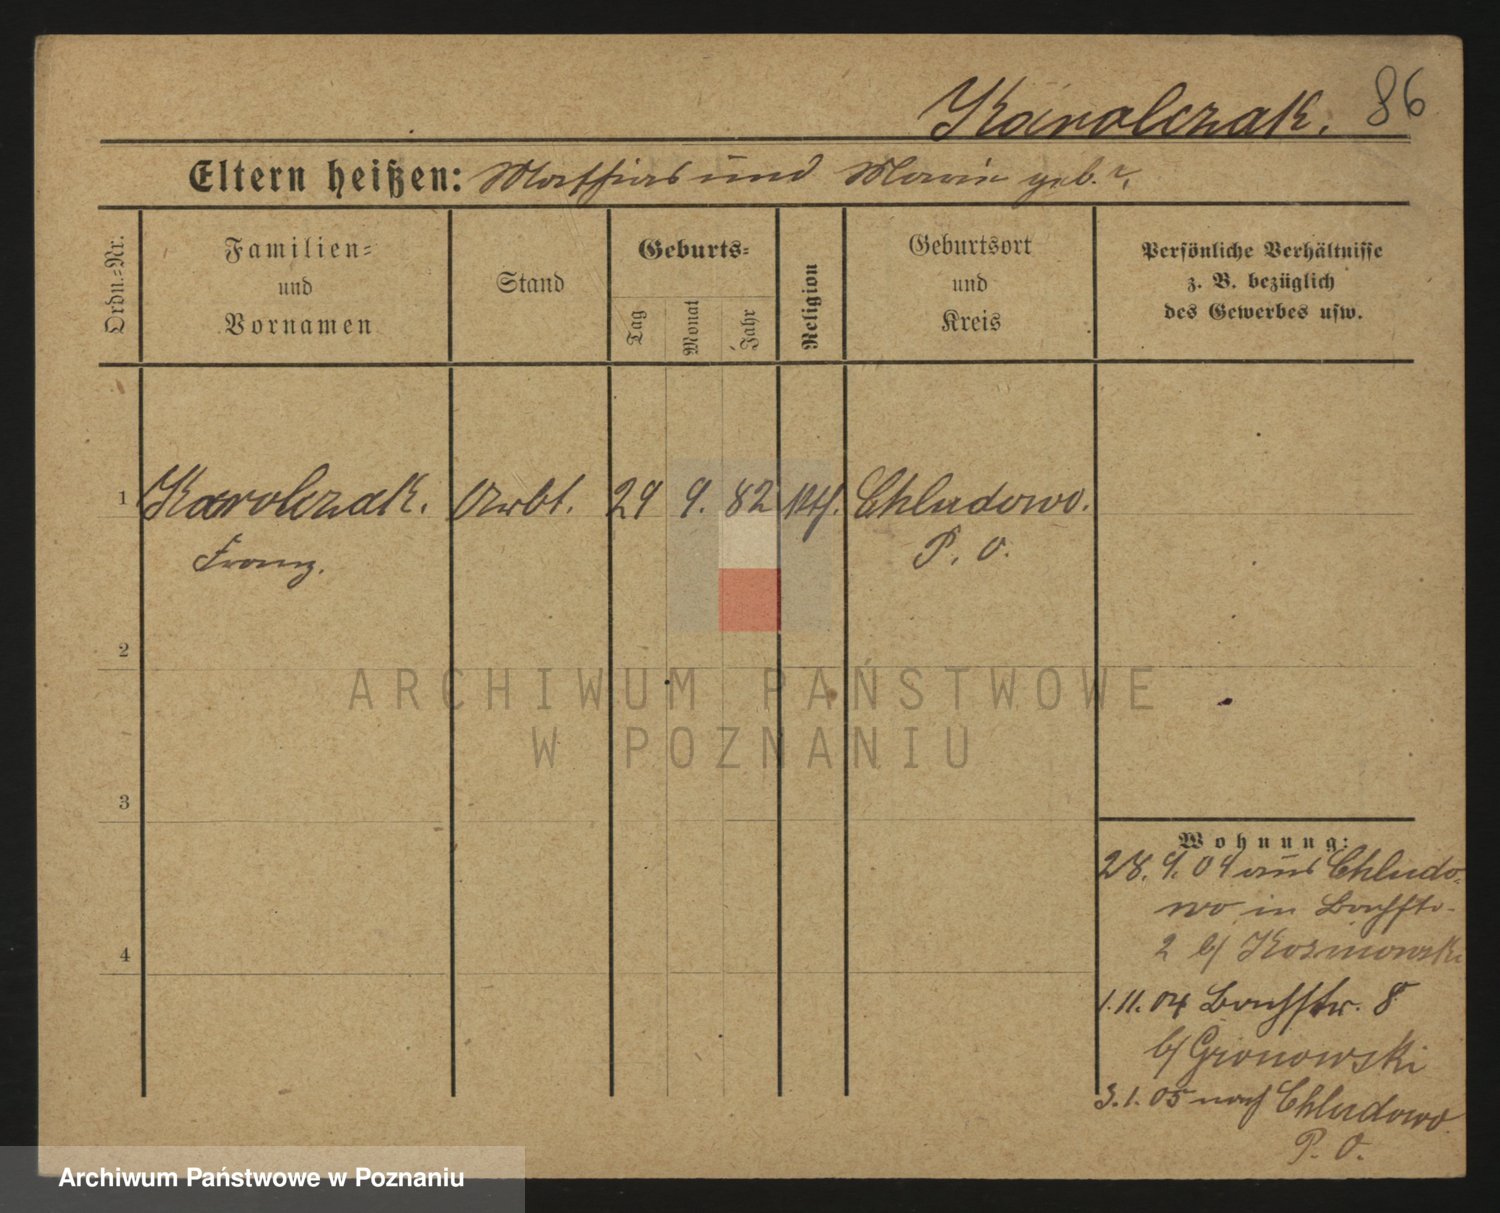 Karolczak. 86
Eltern heißen: Mathias und Marie geb. ?.
Ordn.=Nr.
Familien=
und
Vornamen
Stand
Geburts=
Tag
Monat
Jahr
Religion
Geburtsort
und
Kreis
Persönliche Verhältnisse
z. B. bezüglich
des Gewerbes usw.
1 Karolczak. Arbt. 29 9. 82 kth. Chludowo.
Franz. P. O.
2
3
4
ARCHIWUM PAŃSTWOWE
W POZNANIU
Wohnung:
28. 9. 04 aus Chludo-
wo in Bachstr.
2 b/ Kosmowski
1. 11. 04 Bachstr. 8
b/ Gronowski
3. 1. 05 nach Chludowo.
P. O.
Archiwum Państwowe w Poznaniu